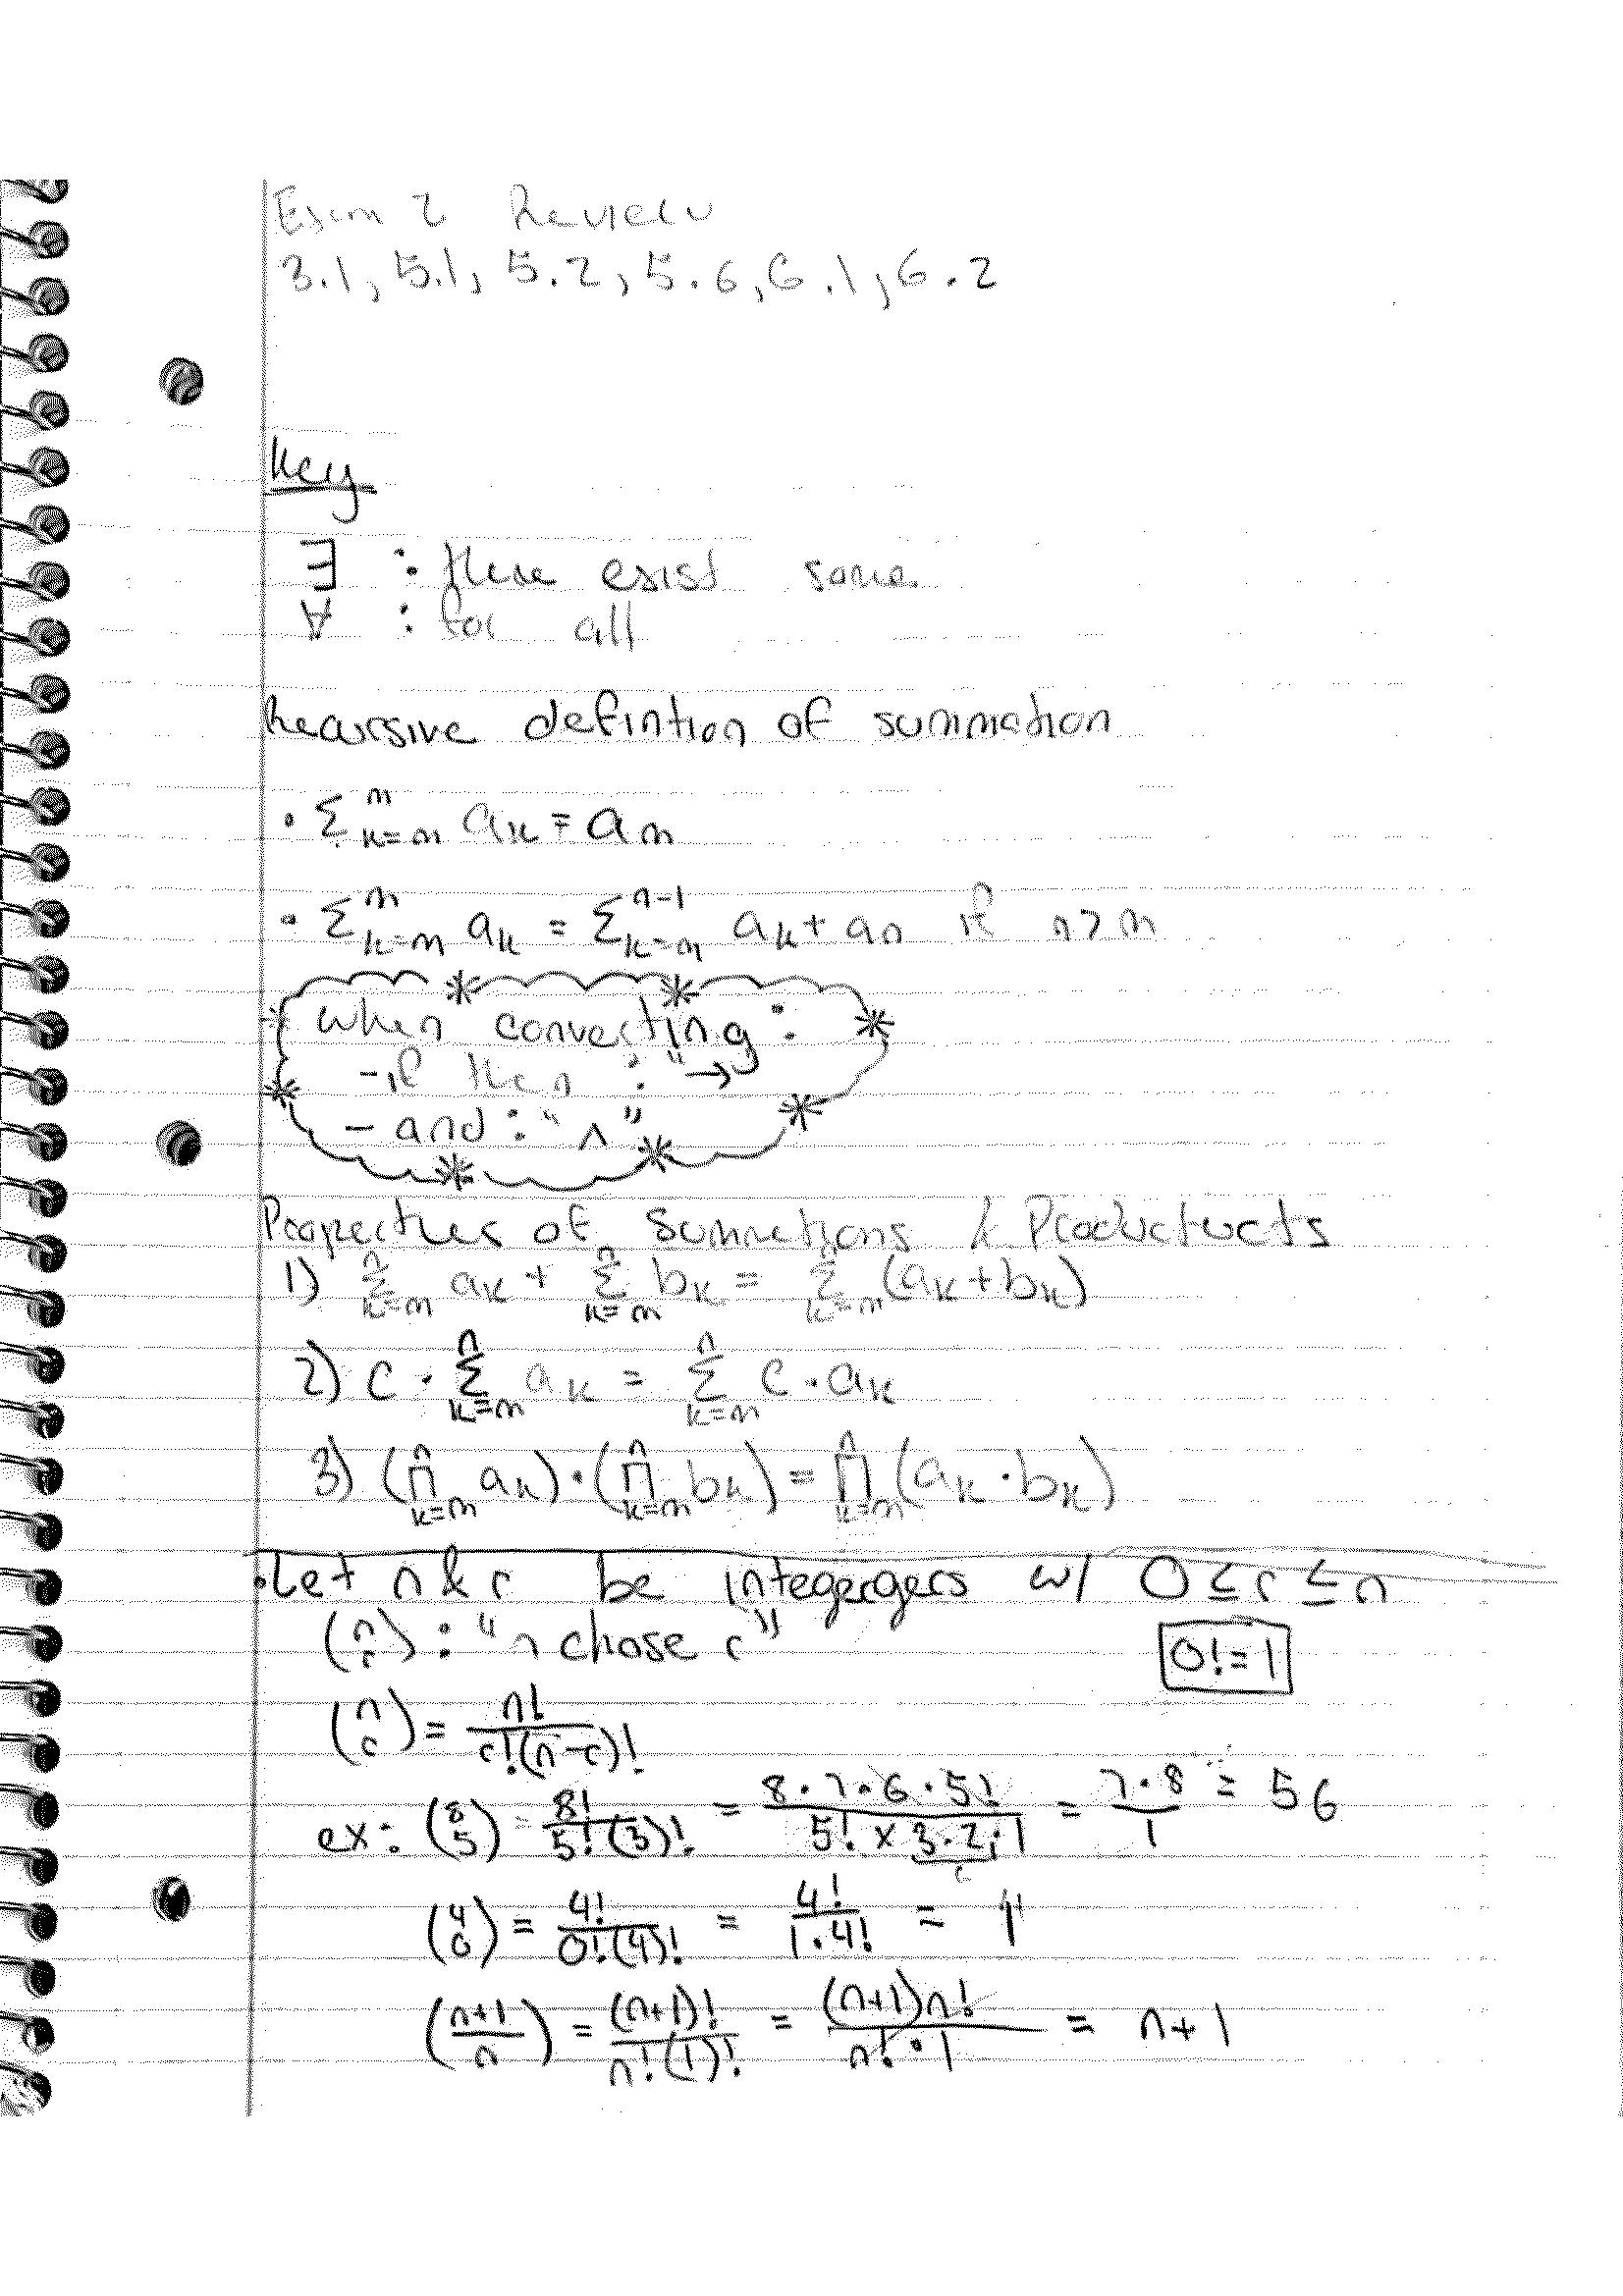 Exam 2 Review
3.1, 5.1, 5.2, 5.6, 6.1, 6.2
Key
∃ : there exist some
∀ : for all
Recursive defintion of summation
• Σ^m_{k=m} a_k = a_m
• Σ^n_{k=m} a_k = Σ^{n-1}_{k=m} a_k + a_n if n > m
when converting :
- if then : "→"
- and : "∧"
Properties of Summations & Productucts
1) Σ^n_{k=m} a_k + Σ^n_{k=m} b_k = Σ^n_{k=m} (a_k + b_k)
2) c · Σ^n_{k=m} a_k = Σ^n_{k=m} c · a_k
3) (Π^n_{k=m} a_k) · (Π^n_{k=m} b_k) = Π^n_{k=m} (a_k · b_k)
• Let n & r be integergers w/ 0 ≤ r ≤ n
(n r) : "n chose r"
0! = 1
(n r) = n! / r!(n-r)!
ex: (8 5) = 8! / 5!(3)! = 8·7·6·5! / 5! x 3·2·1 = 7·8 / 1 = 56
(4 0) = 4! / 0!(4)! = 4! / 1·4! = 1
(n+1 / n) = (n+1)! / n!(1)! = (n+1)n! / n!·1 = n+1